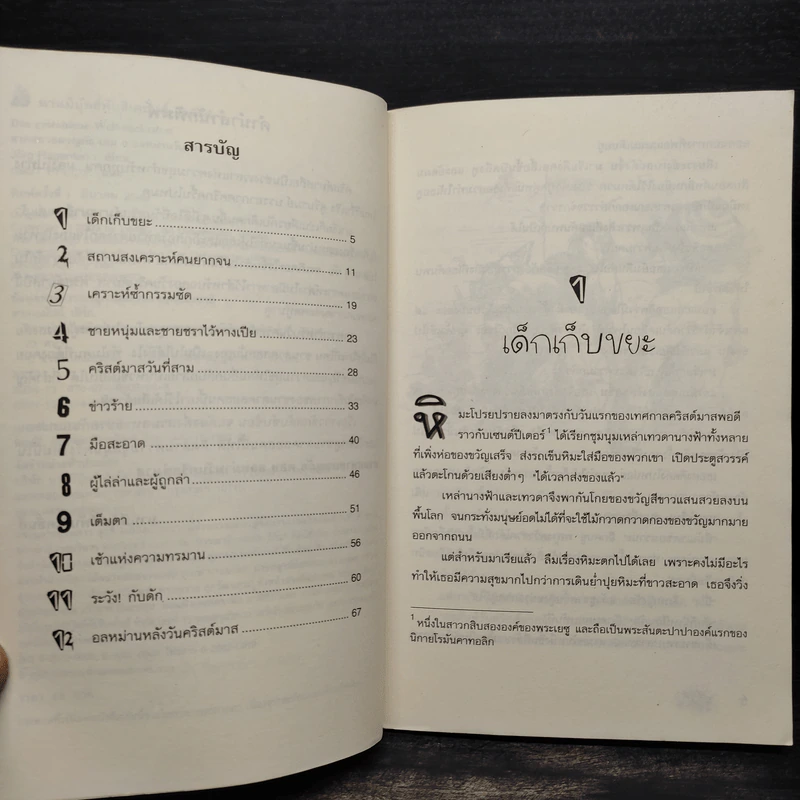 สารบัญ
1 เด็กเก็บขยะ ........ 5
2 สถานสงเคราะห์คนยากจน ........ 11
3 เคราะห์ซ้ำกรรมซัด ........ 19
4 ชายหนุ่มและชายชราไว้หางเปีย ........ 23
5 คริสต์มาสวันที่สาม ........ 28
6 ข่าวร้าย ........ 33
7 มือสะอาด ........ 40
8 ผู้ไล่ล่าและผู้ถูกล่า ........ 46
9 เต็มตา ........ 51
10 เช้าแห่งความทรมาน ........ 56
11 ระวัง! กับดัก ........ 60
12 อลหม่านหลังวันคริสต์มาส ........ 67
1
เด็กเก็บขยะ
หิมะโปรยปรายลงมาตรงกับวันแรกของเทศกาลคริสต์มาสพอดี
ราวกับเซนต์ปีเตอร์1 ได้เรียกชุมนุมเหล่าเทวดานางฟ้าทั้งหลาย
ที่เพิ่งห่อของขวัญเสร็จ ส่งรถเข็นหิมะใส่มือของพวกเขา เปิดประตูสวรรค์
แล้วตะโกนด้วยเสียงต่ำๆ "ได้เวลาส่งของแล้ว"
เหล่านางฟ้าและเทวดาจึงพากันโกยของขวัญสีขาวแสนสวยลงบน
พื้นโลก จนกระทั่งมนุษย์อดไม่ได้ที่จะใช้ไม้กวาดกวาดกองของขวัญมากมาย
ออกจากถนน
แต่สำหรับมาเรียแล้ว ลืมเรื่องหิมะตกไปได้เลย เพราะคงไม่มีอะไร
ทำให้เธอมีความสุขมากไปกว่าการเดินย่ำปุยหิมะที่ขาวสะอาด เธอจึงวิ่ง
1 หนึ่งในสาวกสิบสององค์ของพระเยซู และถือเป็นพระสันตะปาปาองค์แรกของ
นิกายโรมันคาทอลิก